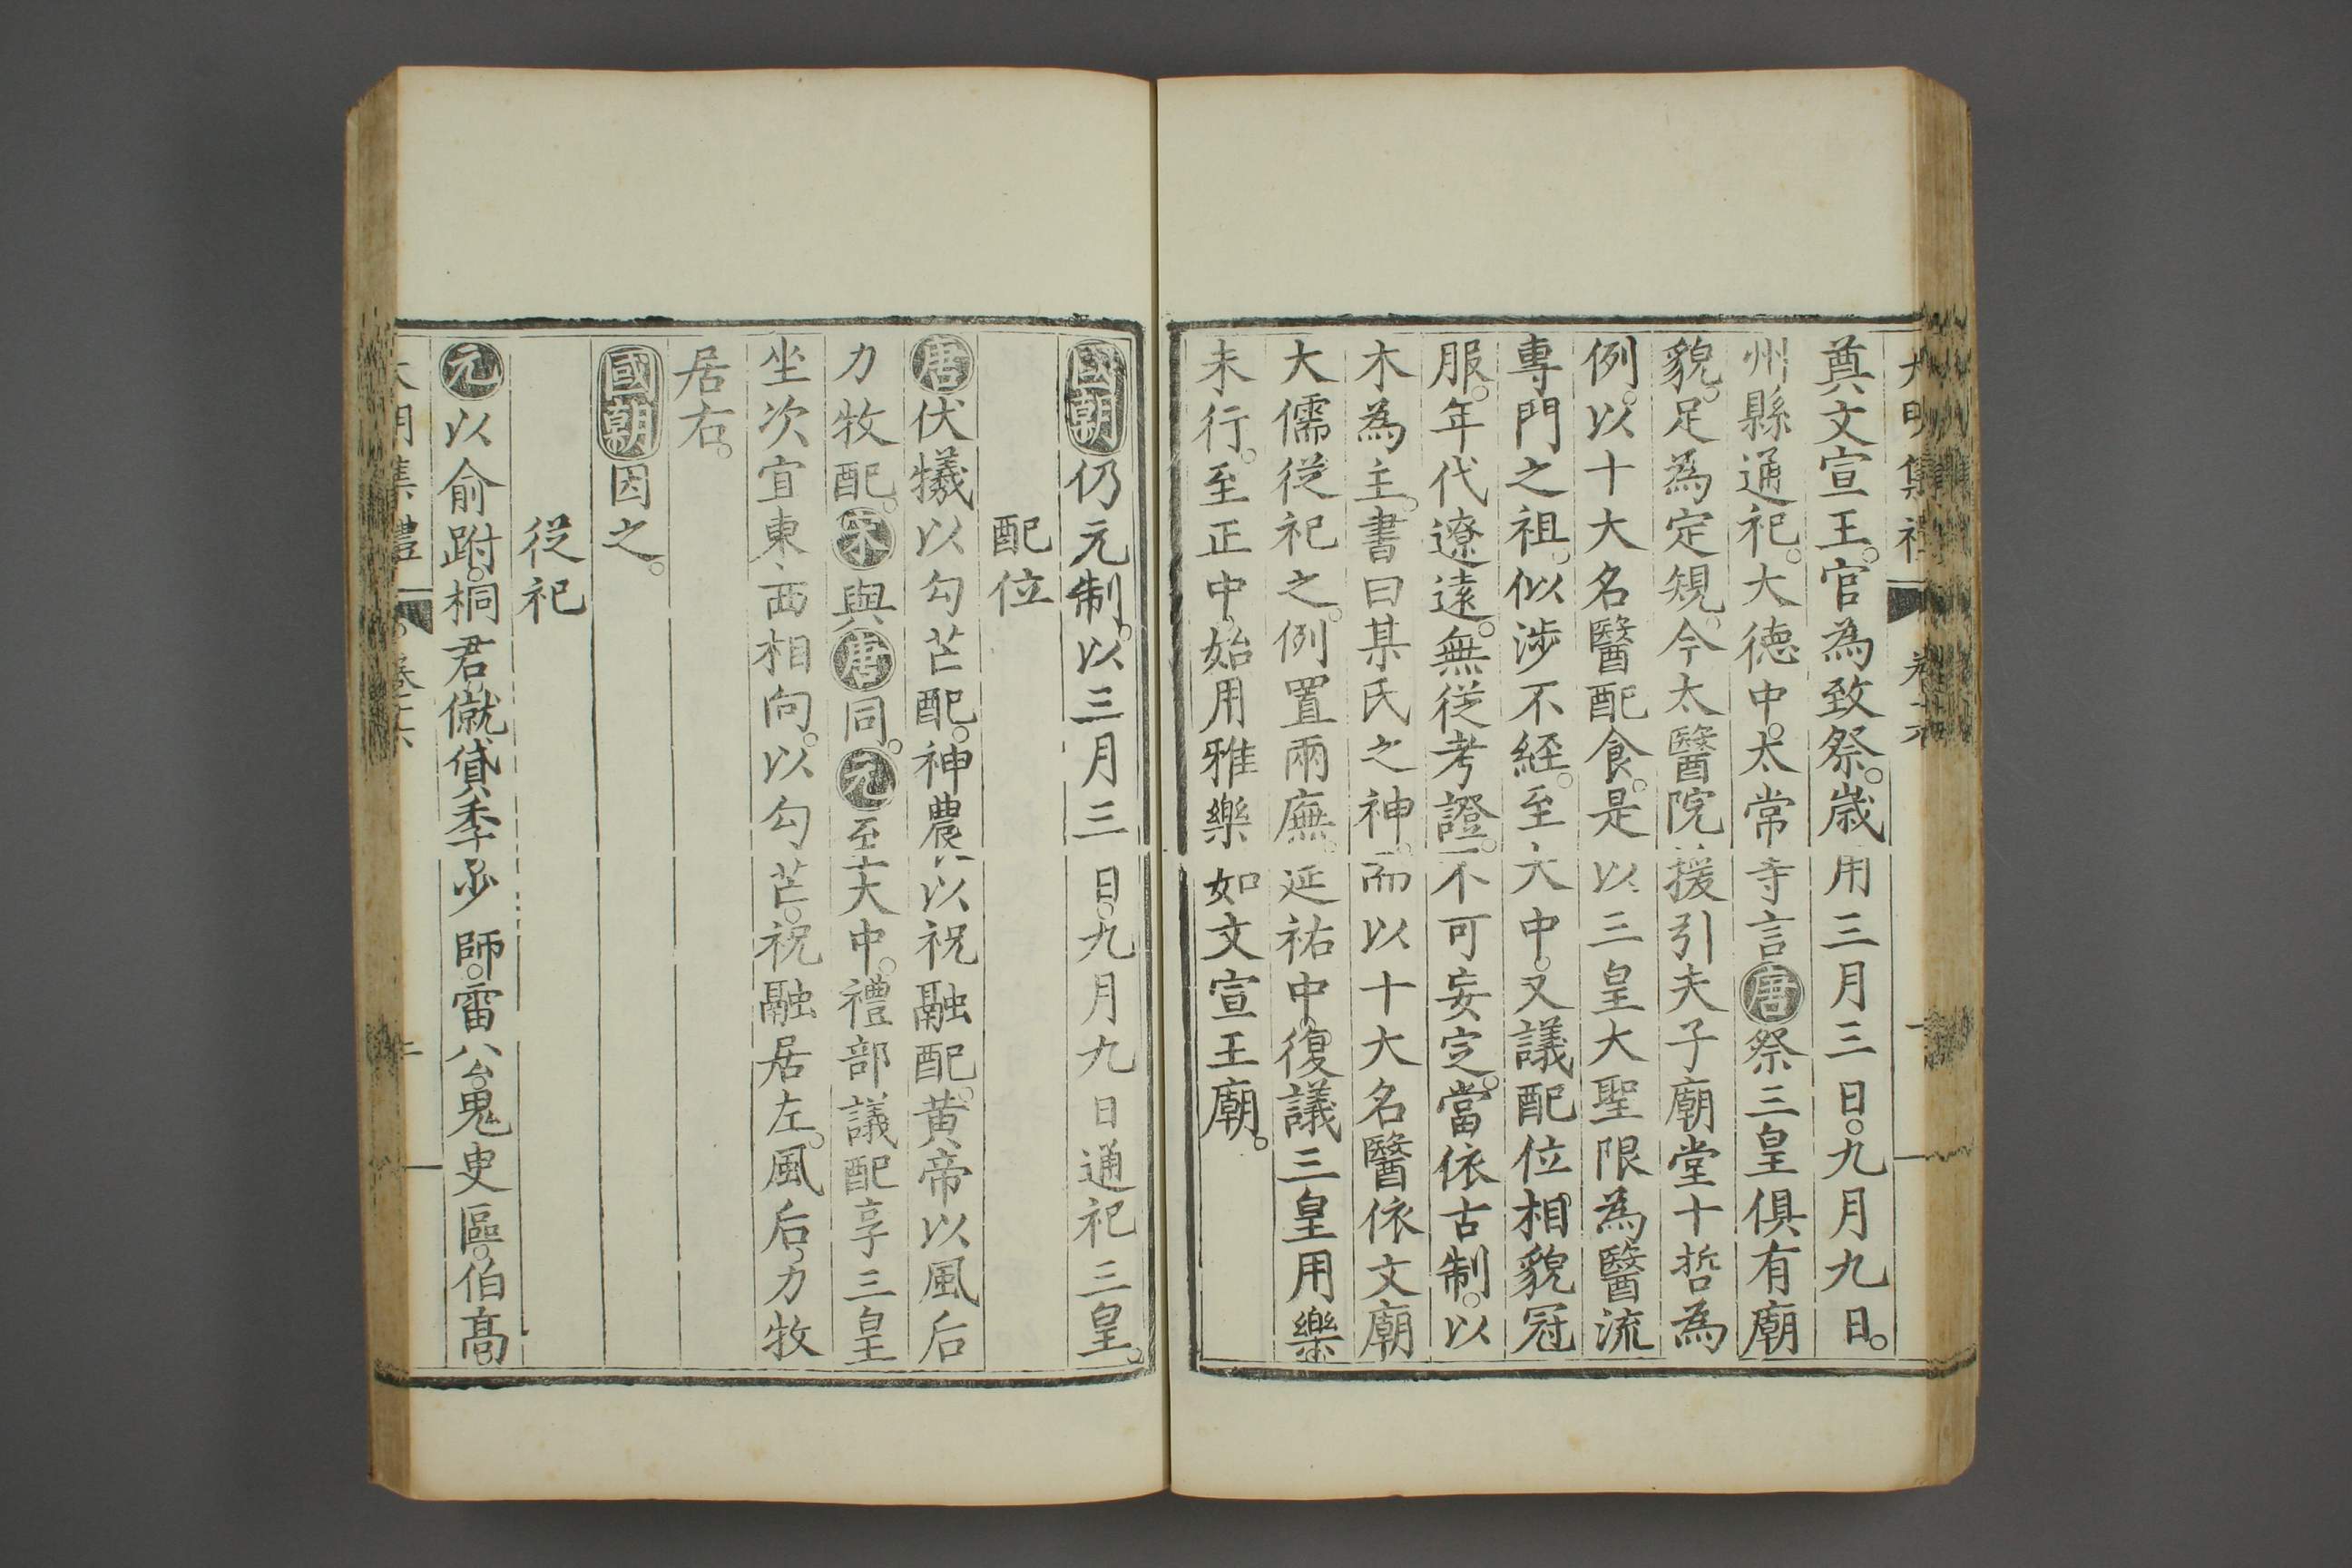 奠文宣王。官為致祭。歲用三月三日。九月九日。
州縣通祀。大德中。太常寺言唐祭三皇俱有廟
貌。足為定規。今太醫院援引夫子廟堂十哲為
例。以十大名醫配食。是以三皇大聖限為醫流
專門之祖。似涉不經。至大中。又議配位相貌冠
服。年代遼遠。無從考證。不可妄定。當依古制。以
木為主。書曰某氏之神。而以十大名醫依文廟
大儒從祀之。例置兩廡。延祐中。復議三皇用樂
未行。至正中。始用雅樂如文宣王廟。
國朝仍元制。以三月三日。九月九日通祀三皇。
配位
唐伏犧以勾芒配。神農以祝融配。黃帝以風后
力牧配。宋與唐同。元至大中。禮部議配享三皇
坐次宜東西相向。以勾芒。祝融居左。風后。力牧
居右。
國朝因之。
從祀
元以俞跗。桐君。僦貸季。少師。雷公。鬼臾區。伯高
大明集禮 卷十六